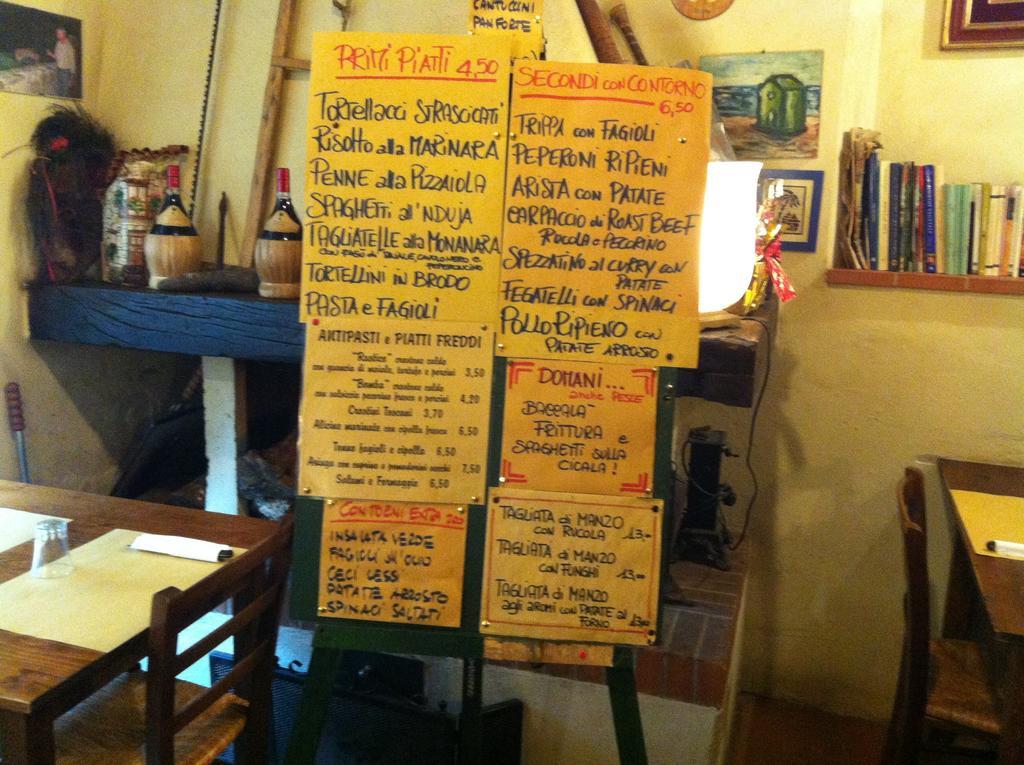 CANTUCCINI
PANFORTE
PRIMI PIATTI 4,50
TORTELLACCI STRASCICATI
RISOTTO alla MARINARA
PENNE alla PIZZAIOLA
SPAGHETTI all'NDUJA
TAGLIATELLE alla MONANARA
TORTELLINI in BRODO
PASTA e FAGIOLI
SECONDI con CONTORNO
6,50
TRIPPA con FAGIOLI
PEPERONI RIPIENI
ARISTA con PATATE
CARPACCIO di ROAST BEEF
RUCOLA e PECORINO
SPEZZATINO al CURRY con
PATATE
FEGATELLI con SPINACI
POLLO RIPIENO con
PATATE ARROSTO
ANTIPASTI e PIATTI FREDDI
"Rustico" crostone caldo
con guancia di maiale, tartufo e porcini 3,50
"Bomba" crostone caldo
con salsiccia pecorino fresco e porcini 4,20
Crostini Toscani 3,70
Alicine marinate con cipolla fresca 6,50
Tonno fagioli e cipolla 6,50
Asiago con caprino e pomodorini secchi 7,50
Salumi e Formaggio 6,50
DOMANI...
anche PESCE
BACCALÀ
FRITTURA e
SPAGHETTI SULLA
CICALA!
CONTORNI EXTRA
INSALATA VERDE
FAGIOLI ALL'OLIO
CECI LESSI
PATATE ARROSTO
SPINACI SALTATI
TAGLIATA di MANZO
con RUCOLA 13,-
TAGLIATA di MANZO
con FUNGHI 13,-
TAGLIATA di MANZO
agli aromi con PATATE al
FORNO 13,00